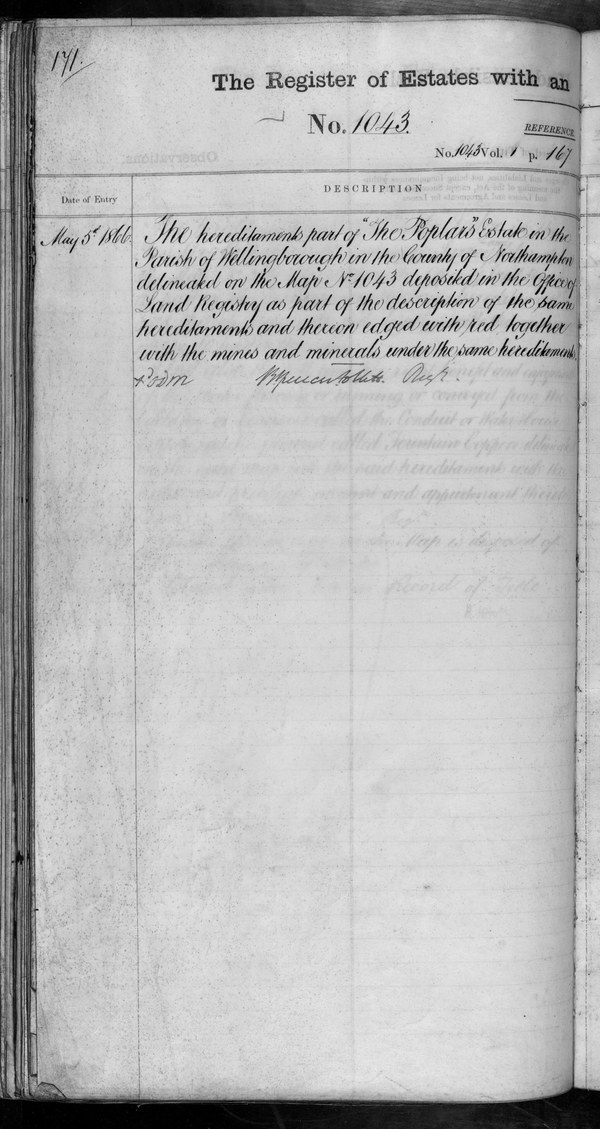 171.
The Register of Estates with an
No. 1043.
REFERENCE.
No. 1043 Vol. 1 p. 167
Date of Entry
DESCRIPTION
May 5th 1866.
The hereditaments part of "The Poplars" Estate in the
Parish of Wellingborough in the County of Northampton
delineated on the Map No 1043 deposited in the Office of
Land Registry as part of the description of the same
hereditaments and thereon edged with red together
with the mines and minerals under the same hereditaments.
Brent Spencer Follett. Regr.